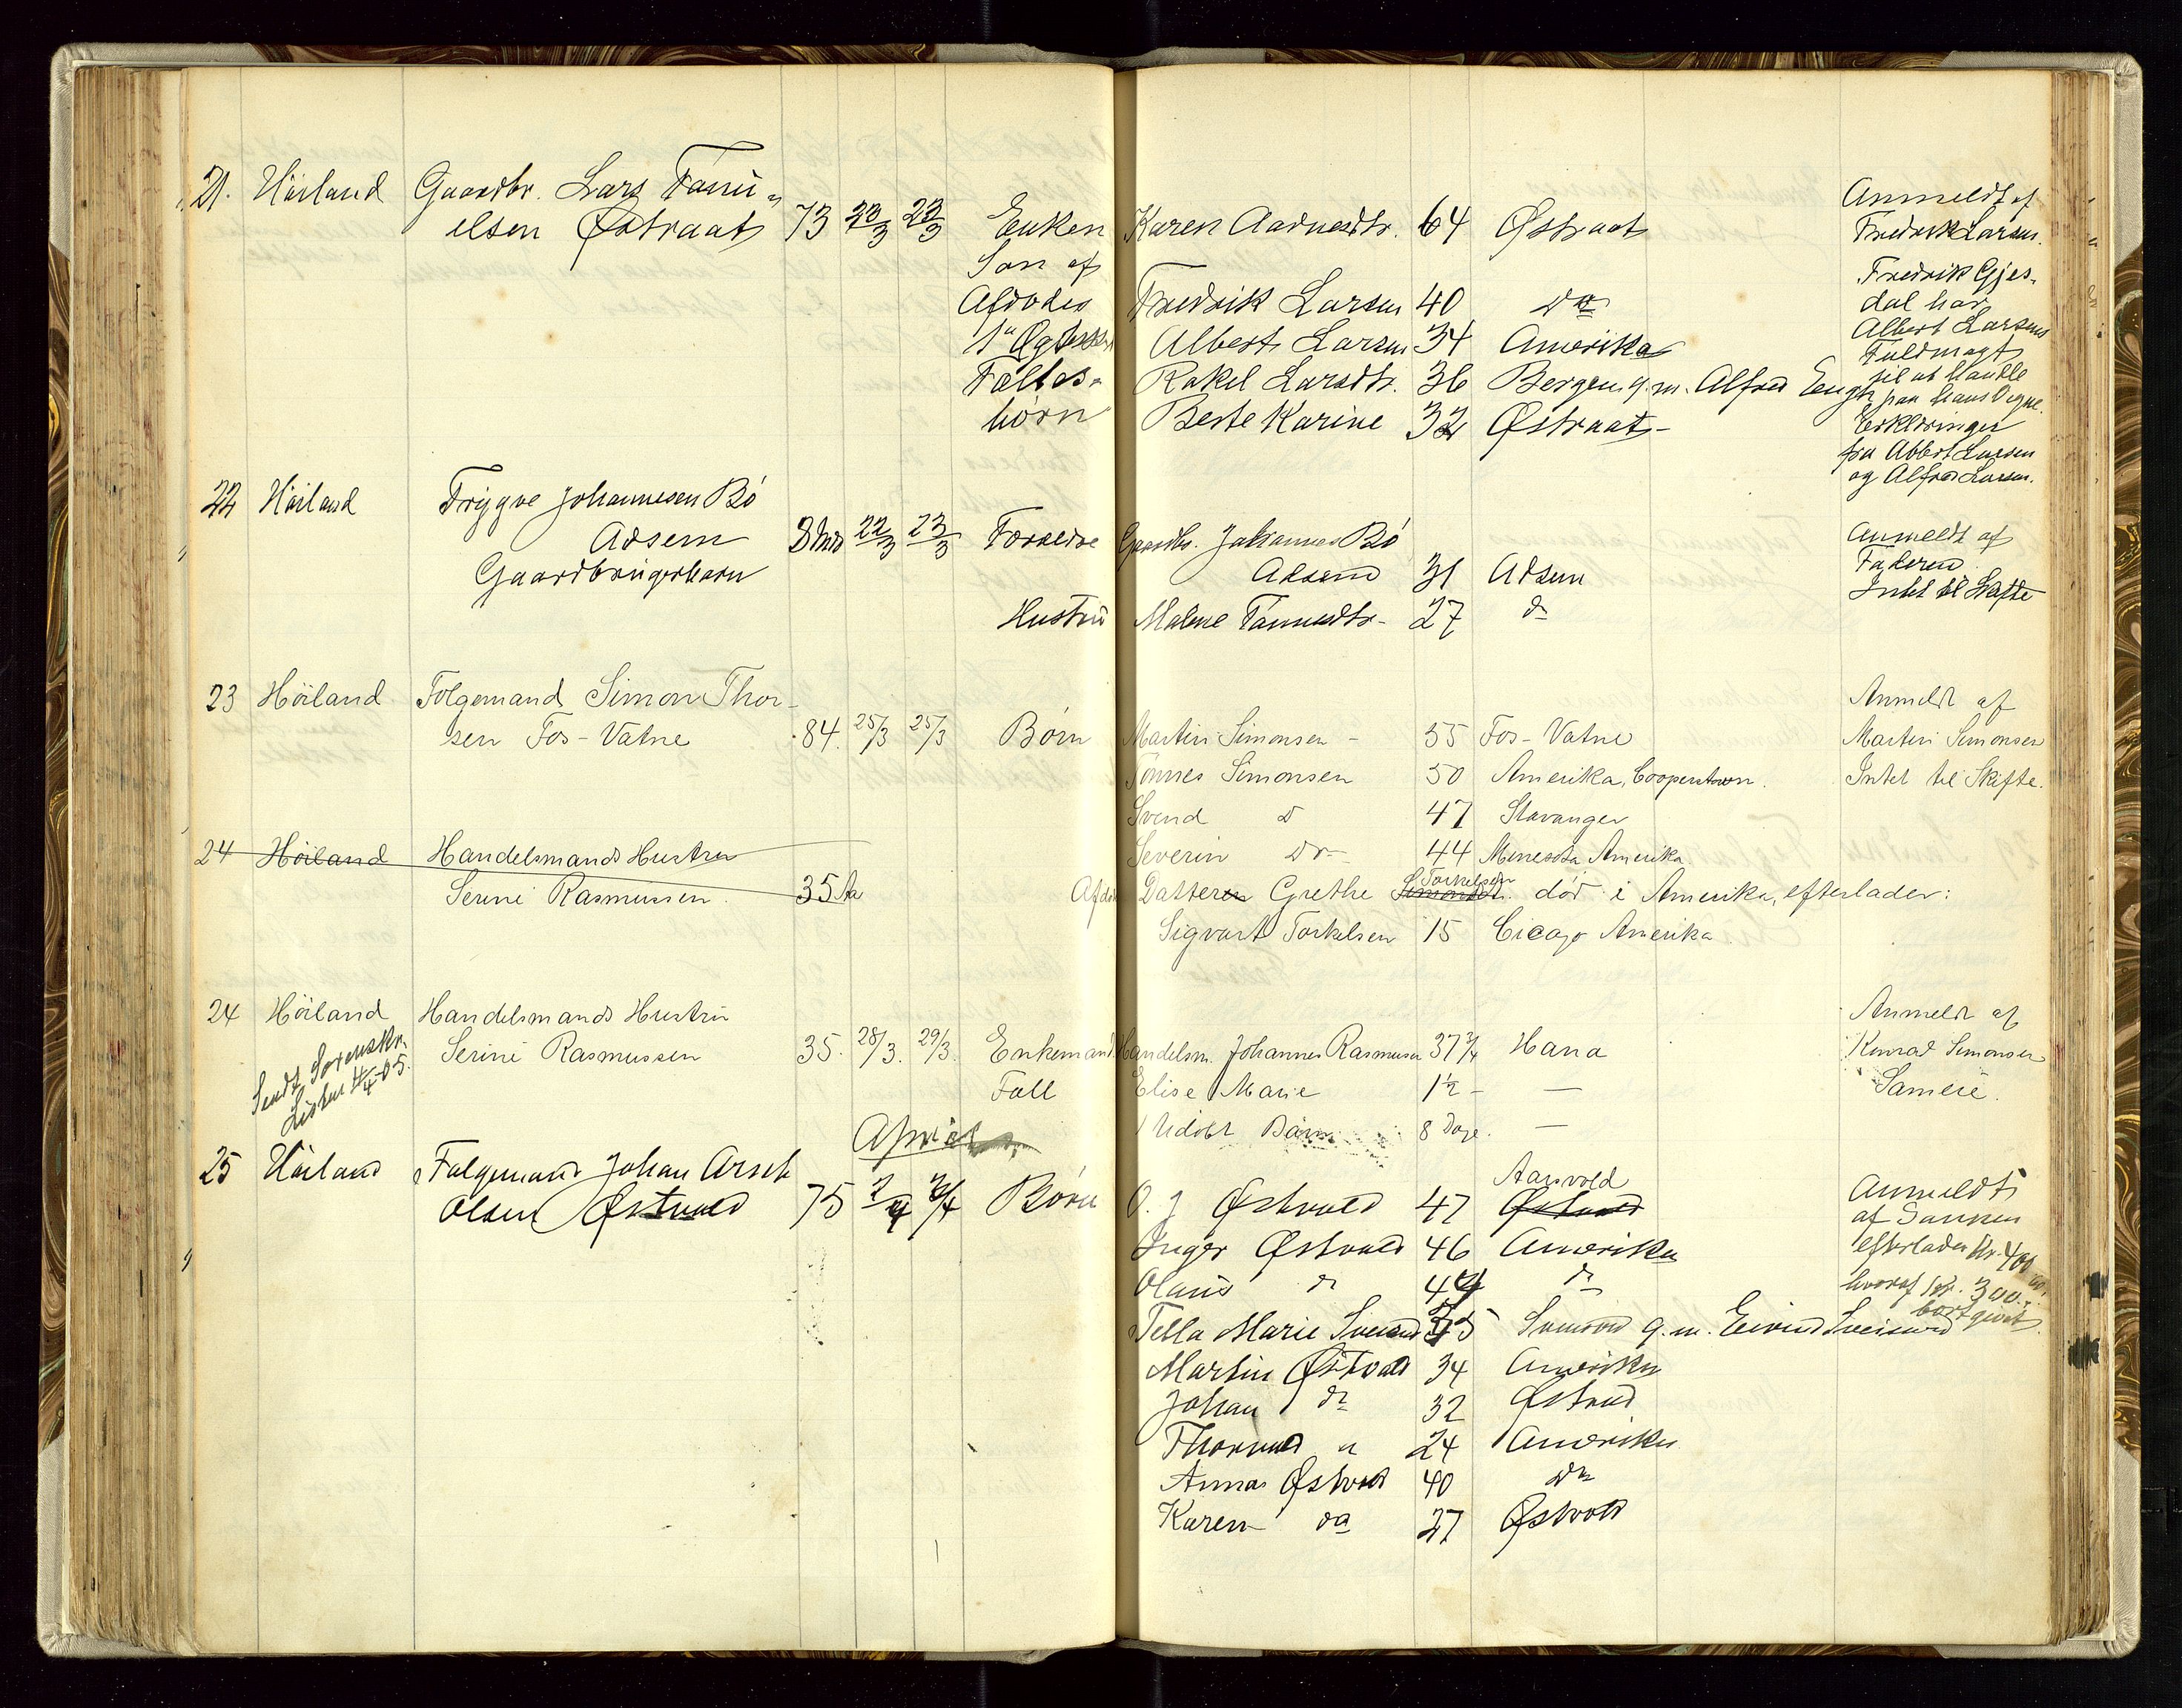 21. Höiland Gaardbr. Lars Tønn-
elsen Østraat 73 22/3 23/3 Enken Karen Aadnesdtr. 64 Østraat
Anmeldt af
Fredrik Larsen.
Søn af
Afdødes Fredrik Larsen 40 do
1ste Ægtesk. Albert Larsen 34 Amerika
Fælles- Rakel Larsdtr. 36 Bergen g.m. Alfred
børn Berte Karine 32 Østraat-
Fredrik Gjes-
dal har
Albert Larsens
Fuldmagt
til at handle
paa hans Vegne.
Erklæringer
fra Albert Larsen
og Alfred Larsen.
22 Höiland Trygve Johannesen Bö
Adsem 3 22/3 23/3 Forældre Gaardbr. Johannes Bö
Gaardbrugerbarn Adsem 31 Adsem
Hustru Malene Tønnesdtr- 27 do
Anmeldt af
Faderen
Intet til Skifte
23 Höiland Folgemand Simon Thor-
sen Fos-Vatne 84. 25/3 25/3 Børn Martin Simonsen - 55 Fos-Vatne
Tønnes Simonsen 50 Amerika, Cooperstown.
Svend d 47 Stavanger
Severin do 44 Minesota Amerika
Anmeldt af
Martin Simonsen
Intet til Skifte.
24 Höiland Handelsmands Hustru
Serine Rasmussen 35 Aar
Afdöd Datteren Grethe Torkelsen död i Amerika, efterlader:
Sigvart Torkelsen 15 Cicago Amerika
24 Höiland Handelsmands Hustru
Serine Rasmussen 35. 28/3. 29/3. Enkemand Handelsm. Johannes Rasmussen 37 3/4 Hana
Fäll Elise Marie 1½ - —
1 Udöbt Barn 8 Dage. —
Anmeldt af
Konrad Simonsen
Sameie.
Sendt Sorenskr.
Listen 4/4-05.
April
25 Höiland Folgemand Johan Arsch
Olsen Østvold 75 2/4 3/4 Børn O. J Østvold 47 Aarsvold Østvold
Inger Østvold 46 Amerika
Olaus do 44 do
Tella Marie 35 g.m. Eivind
Martin Østvold 34 Amerika
Johan do 32 Østvold
Thorvald " 24 Amerika
Anna Østvold 40 do
Karen do 27 Østvold
Anmeldt
af Sønnen
efterlader Kr. 400
hvoraf 300
bortgivet